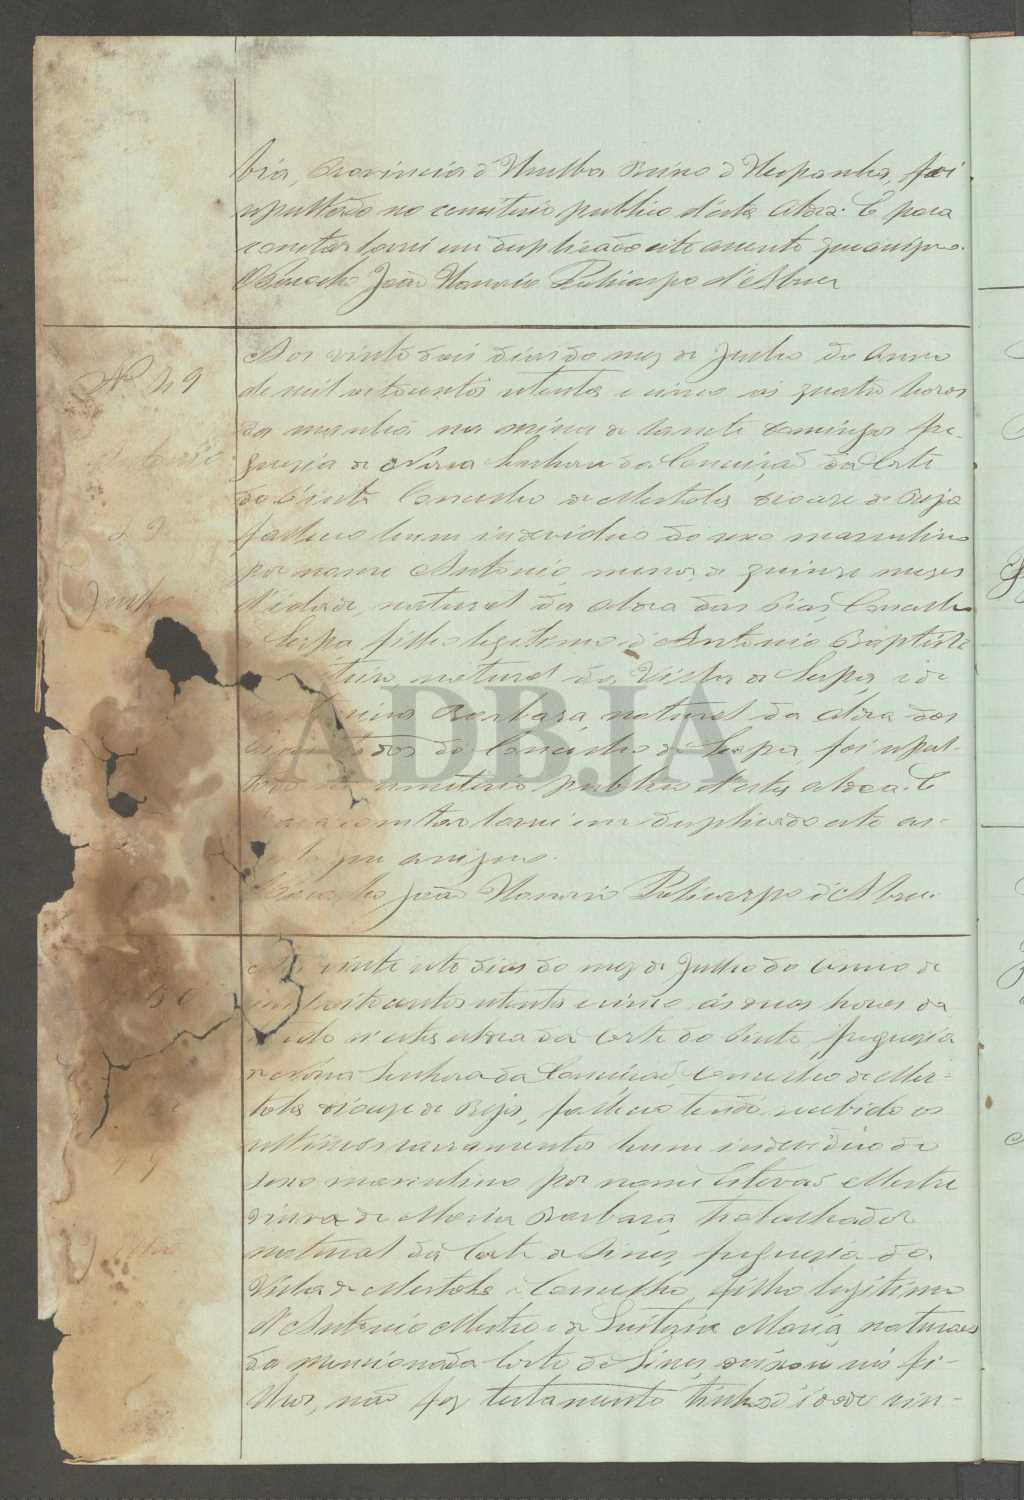 bia, Provincia d'Huelba Reino d'Hespanha, foi
sepultado no cemiterio publico d'esta Aldea. E para
constar lavrei em duplicado este assento que assigno.
O Parocho João Honorio Policarpo d'Abreu
Nº 49
Antonio
22
Junho
Aos vinte dois dias do mez de Junho do Anno
de mil oitocentos oitenta e cinco ás quatro horas
da manhã na mina de Sancto Domingos fre-
guesia de Nossa Senhora da Conceição da Corte
do Pinto Concelho de Mertola Diocese de Beja
falleceu hum individuo do sexo masculino
por nome Antonio, menor, de quinze mezes
d'idade, natural da Aldea das Pias, Concelho
Serpa filho legitimo d'Antonio Baptista
natural da Villa de Serpa, e de
Barbara, natural da Aldea dos
do Concelho de Serpa, foi sepul-
tado no cemiterio publico d'esta aldea. E
para constar lavrei em duplicado este as-
sento que assigno.
O Parocho João Honorio Policarpo d'Abreu
50
Aos vinte oito dias do mez de Julho do Anno de
mil oitocentos oitenta e cinco ás duas horas da
tarde n'esta aldea da Corte do Pinto, freguesia
de Nossa Senhora da Conceição, Concelho de Mer-
tola Diocese de Beja, falleceu tendo recebido os
ultimos sacramentos hum individuo do
sexo masculino por nome Estevão Mestre
viuvo de Maria Barbara, trabalhador
natural da Corte de Sines, freguesia da
Villa de Mertola e Concelho, filho legitimo
d'Antonio Mestre e de Maria, naturaes
da mencionada Corte de Sines, deixou fi-
lhos, não fez testamento tinha d'idade vin-
ADBJA